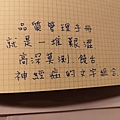 品質管理手冊
就是一堆艱澀
高深莫測、饒舌
神經病的文字組合